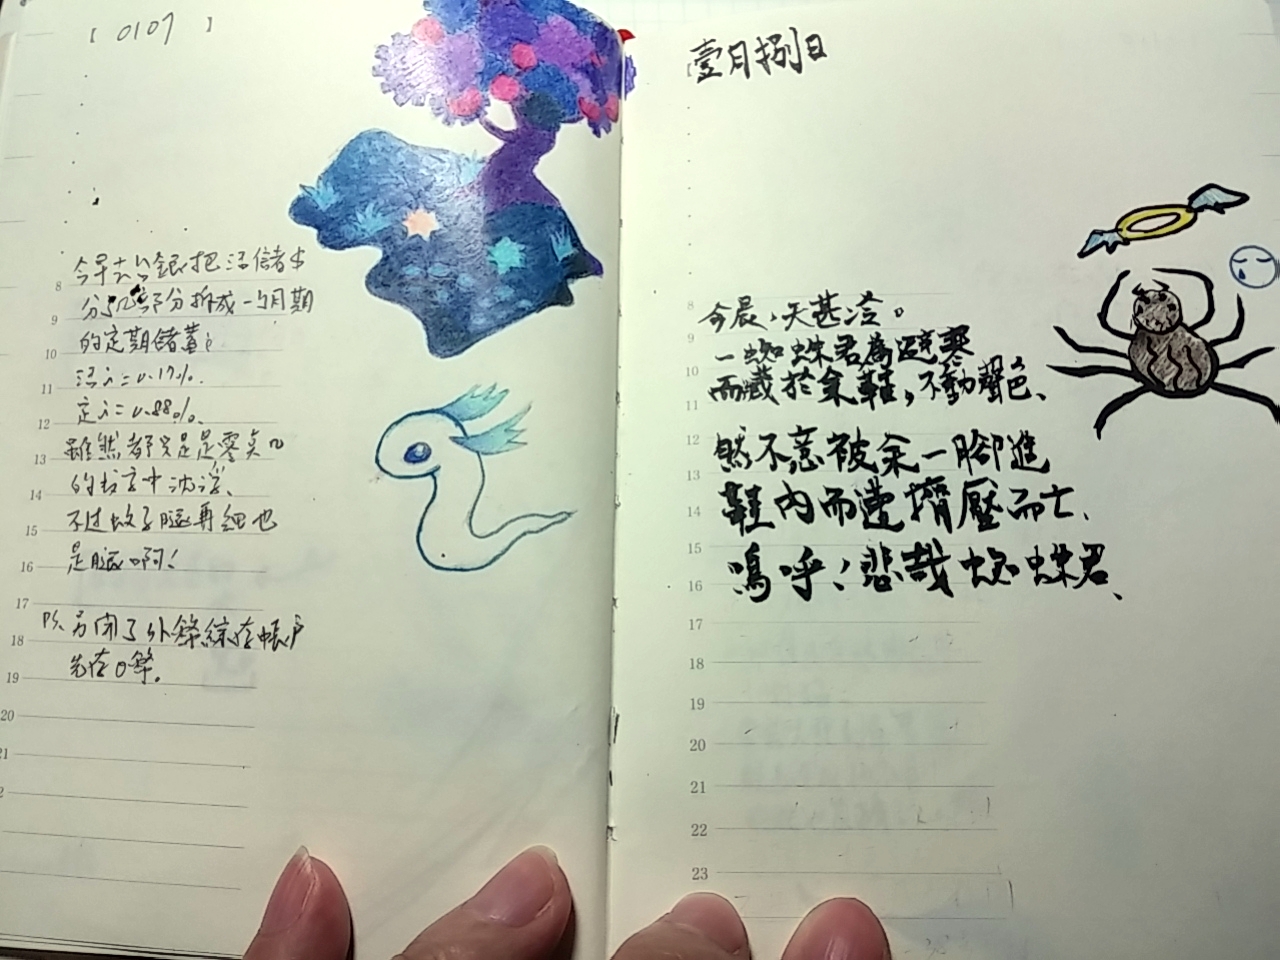 【 0107 】
今早去台銀把活儲本
分了一部分拆成一個月期
的定期儲蓄
活i=0.17%.
定i=0.88%.
雖然都只是是零點几
的数字中沈浮、
不过蚊子腿再细也
是腿啊!
P.S. 另開了外幣綜存帳戶
先存0幣。
8
9
10
11
12
13
14
15
16
17
18
19
20
21
壹月捌日
今晨，天甚冷。
一蜘蛛君為避寒
而藏於余鞋，不動聲色、
然不意被余一腳進
鞋內而遭擠壓而亡、
嗚呼！悲哉蜘蛛君、
8
9
10
11
12
13
14
15
16
17
18
19
20
21
22
23